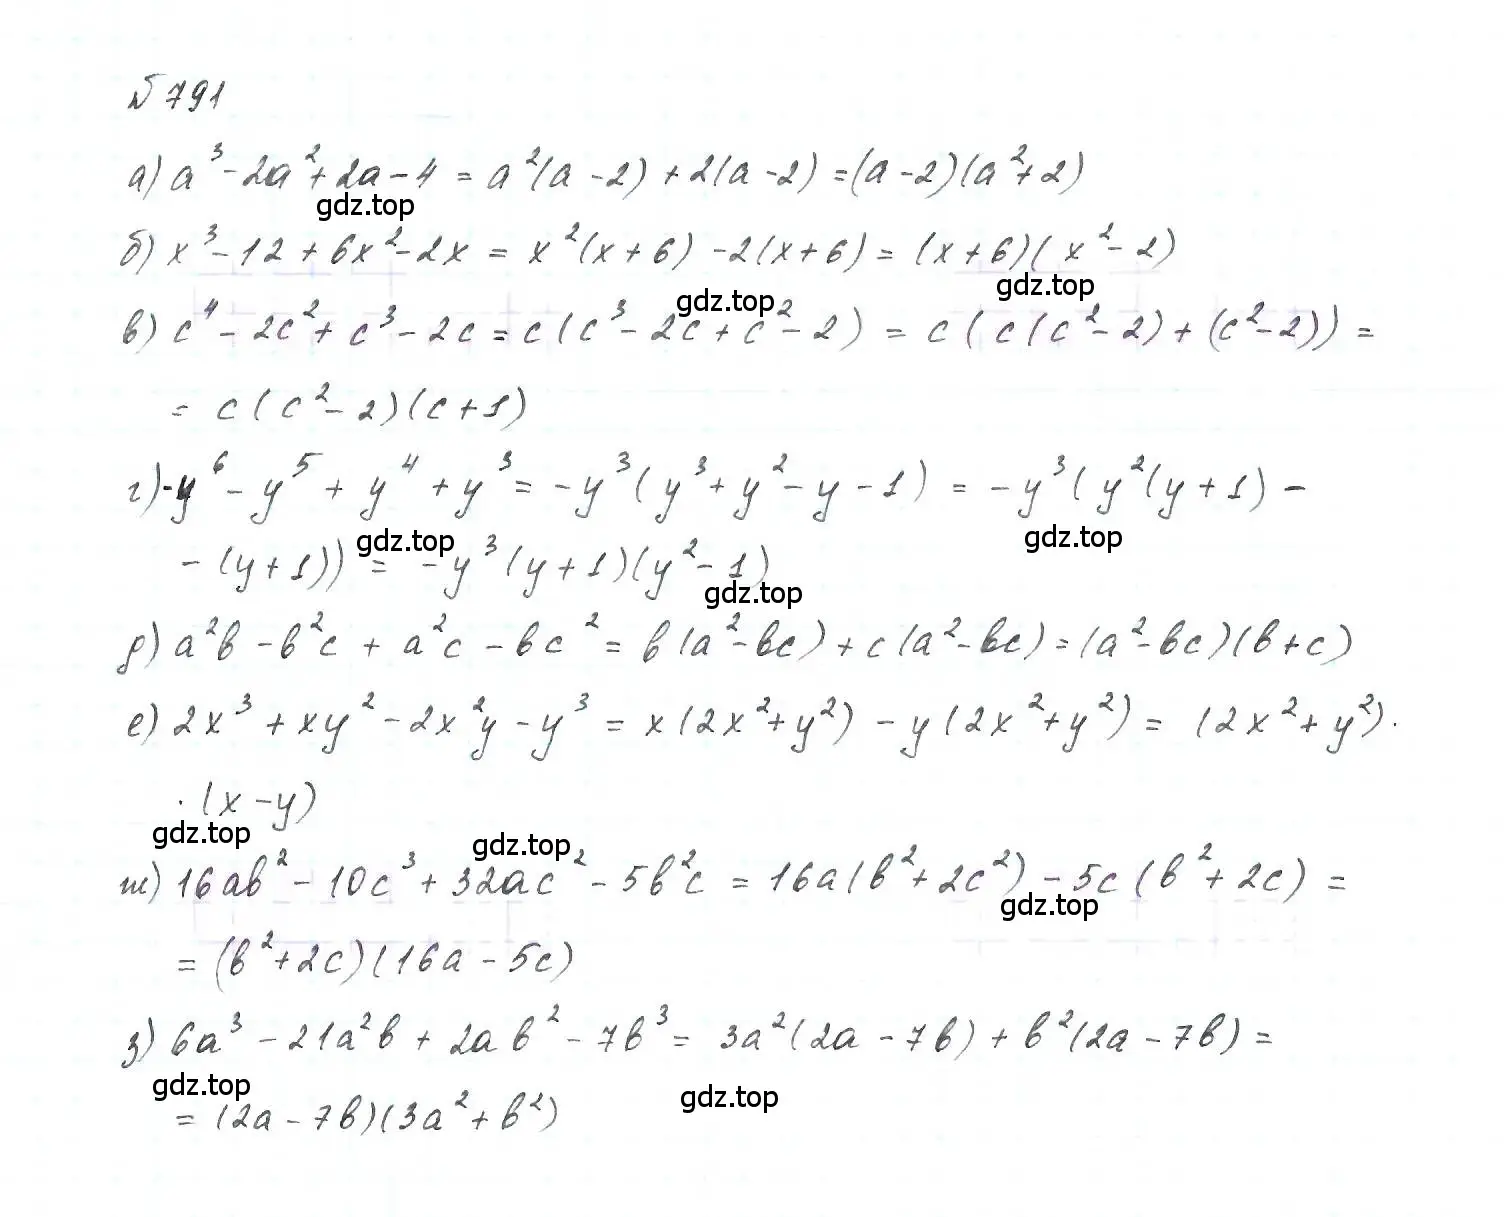 №791
а) a³ - 2a² + 2a - 4 = a²(a - 2) + 2(a - 2) = (a - 2)(a² + 2)
gdz.top
б) x³ - 12 + 6x² - 2x = x²(x + 6) - 2(x + 6) = (x + 6)(x² - 2)
gdz.top gdz.top
в) c⁴ - 2c² + c³ - 2c = c(c³ - 2c + c² - 2) = c(c(c² - 2) + (c² - 2)) =
= c(c² - 2)(c + 1)
г) -y⁶ - y⁵ + y⁴ + y³ = -y³(y³ + y² - y - 1) = -y³(y²(y + 1) -
gdz.top gdz.top
- (y + 1)) = -y³(y + 1)(y² - 1)
gdz.top
д) a²b - b²c + a²c - bc² = b(a² - bc) + c(a² - bc) = (a² - bc)(b + c)
е) 2x³ + xy² - 2x²y - y³ = x(2x² + y²) - y(2x² + y²) = (2x² + y²) ·
· (x - y)
gdz.top gdz.top
ж) 16ab² - 10c³ + 32ac² - 5b²c = 16a(b² + 2c²) - 5c(b² + 2c) =
gdz.top
= (b² + 2c)(16a - 5c)
з) 6a³ - 21a²b + 2ab² - 7b³ = 3a²(2a - 7b) + b²(2a - 7b) =
gdz.top gdz.top
= (2a - 7b)(3a² + b²)